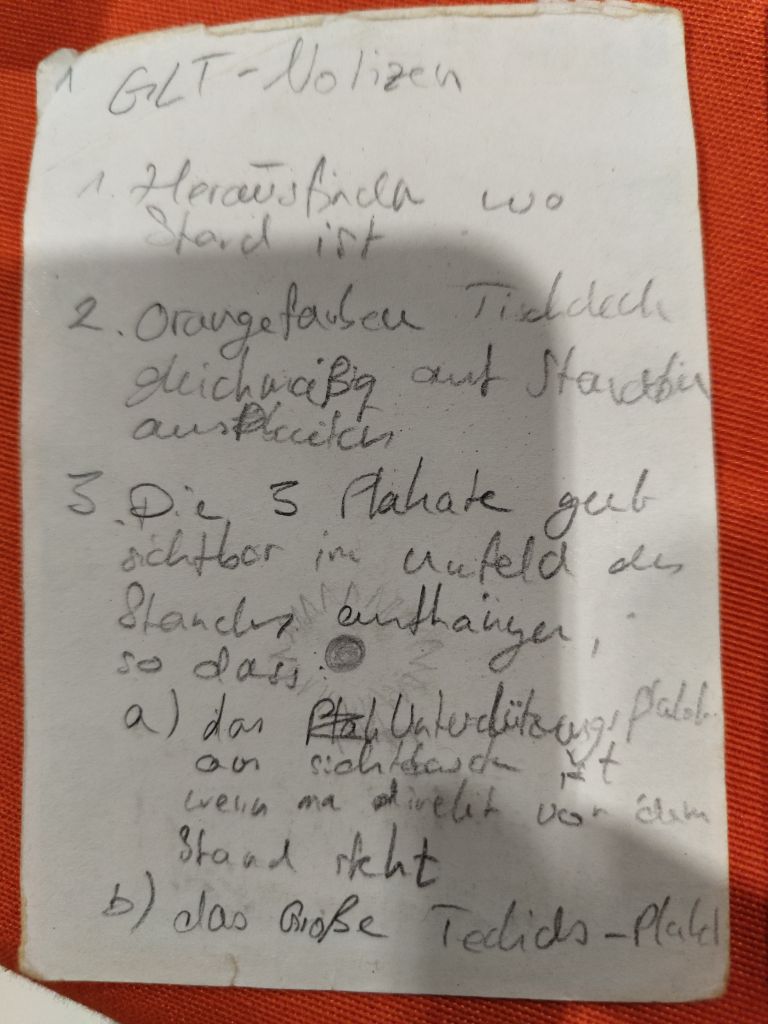 1 GLT-Notizen
1. Herausfinden wo
Stand ist
2. Orangefarben Tischdeck
gleichmäßig auf
ausbreiten
3. Die 3 Plakate gut
sichtbar im Umfeld des
Standes aufhängen,
so dass:
a) das
am sichtbarsten ist
wenn ma direkt vor dem
Stand steht
b) das Große